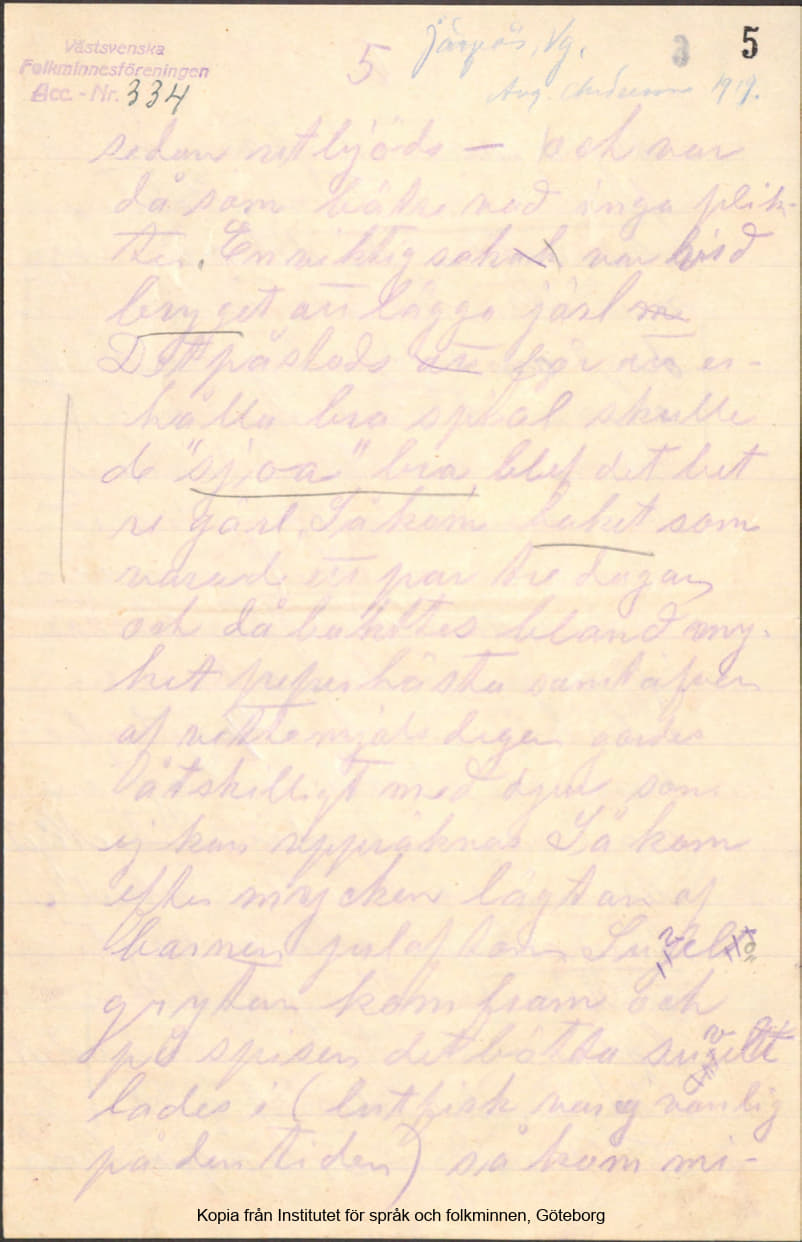 Västsvenska
Folkminnesföreningen
Acc. - Nr. 334
5
Järpås, Vg.
3
5
Aug. 1919.
sedan utbjöds — och var
då som bätre ved inga plik-
ter. En viktig sak var vid
brygget att lägga järl
Det påstods att för att er-
hålla bra spial skulle
de "sjoa" bra, blef det bet
re gärl. Så kom baket som
varade ett par tre dagar,
och då baktes bland my-
ket pepperkästa samt äfven
af vettemjöls degen gordes
åtskilligt med djur som
ej kan uppräknas Så kom
efter mycken lägtan af
barnen julaftonen
grytan kom fram och
på spisen det bätsta
lades i (lutfisk var ej vanlig
på den tiden) så kom mi-
Kopia från Institutet för språk och folkminnen, Göteborg